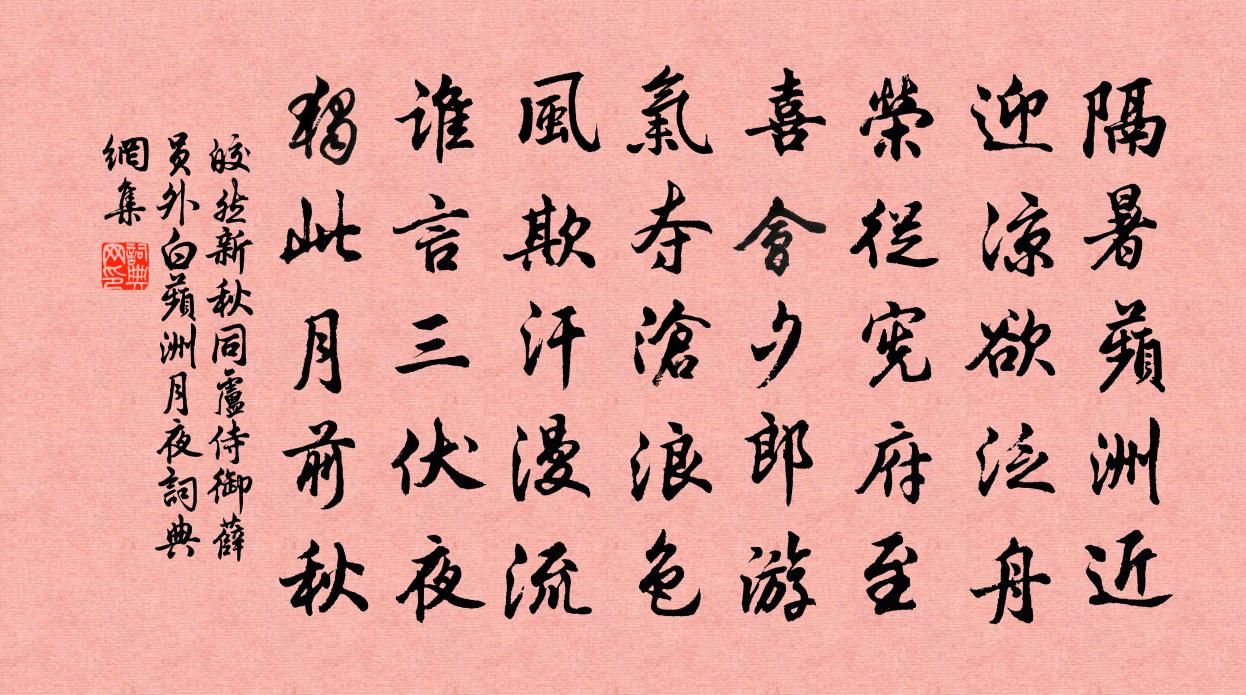 隔暑蘋洲近
迎涼欲泛舟
榮從憲府至
喜會夕郎游
氣奪滄浪色
風欺汗漫流
誰言三伏夜
獨此月前秋
皎然新秋同盧侍御薛
員外白蘋洲月夜詞典
網集
詞典網印